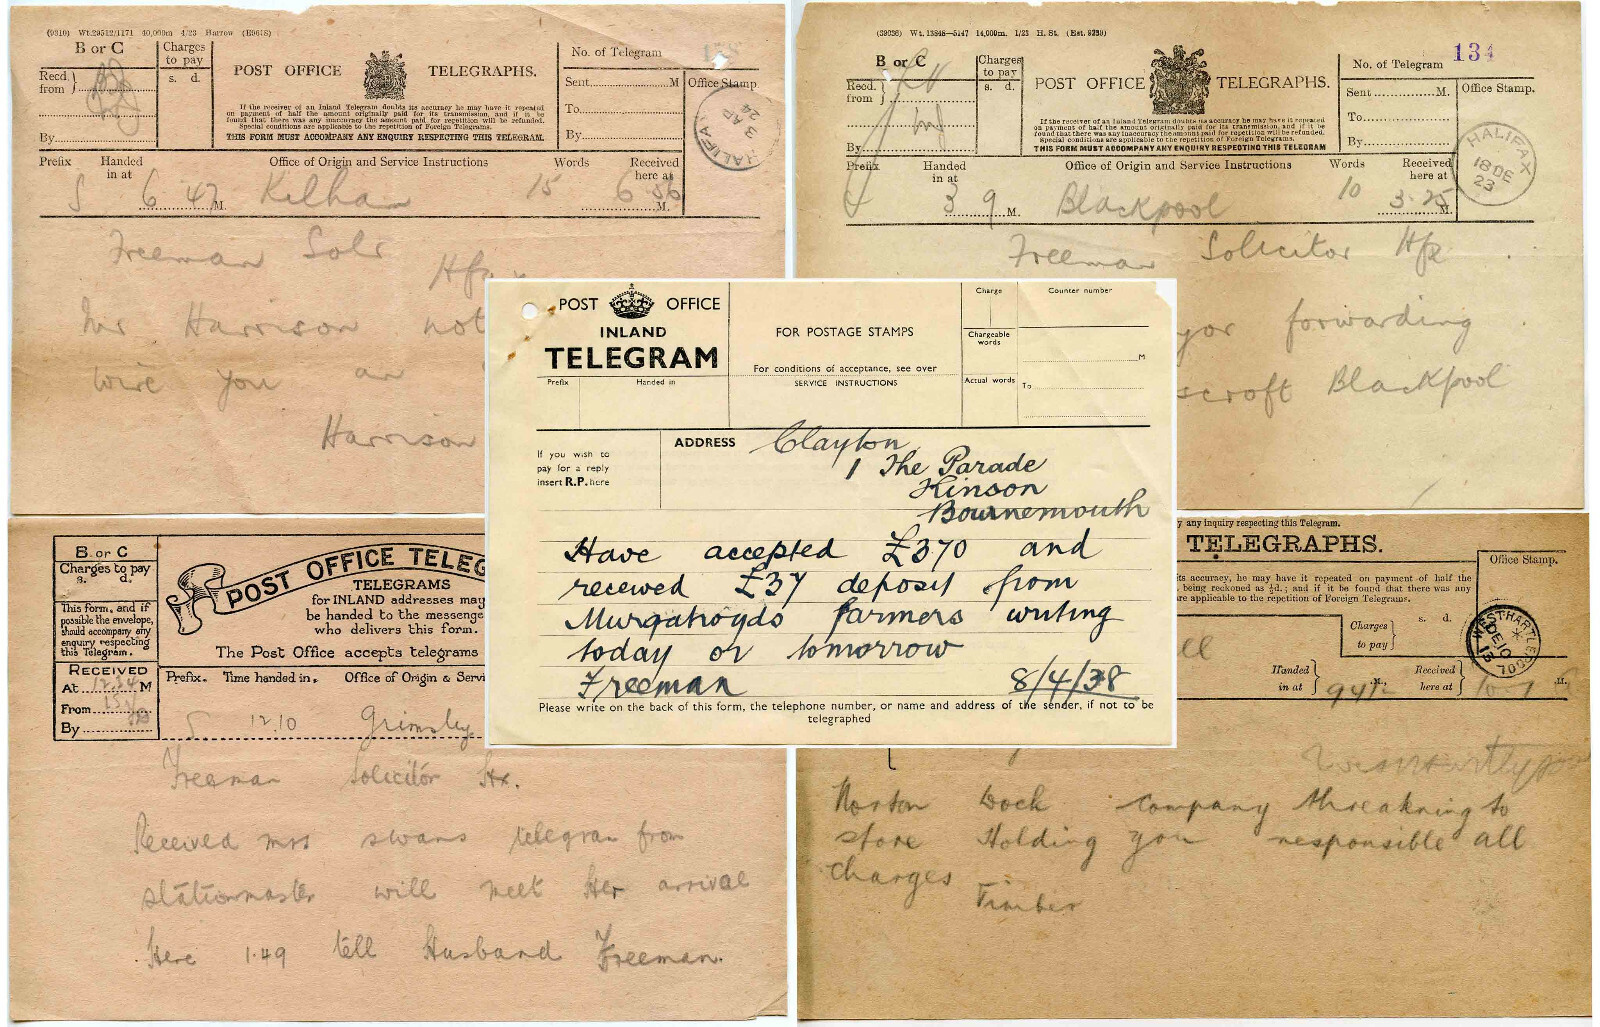 (9310) Wt.29512/1171 40,000m 4/23 Harrow (E9618)
B or C
Charges
to pay
s. d.
Recd.
from
By
POST OFFICE TELEGRAPHS.
If the receiver of an Inland Telegram doubts its accuracy he may have it repeated
on payment of half the amount originally paid for its transmission, and if it be
found that there was any inaccuracy the amount paid for repetition will be refunded.
Special conditions are applicable to the repetition of Foreign Telegrams.
THIS FORM MUST ACCOMPANY ANY ENQUIRY RESPECTING THIS TELEGRAM.
No. of Telegram
Sent M
To
By
Office Stamp.
HALIFAX
3 AP
24
Prefix Handed in at Office of Origin and Service Instructions Words Received here at
S 6 47 M. Kilham 15 6 56 M.
Freeman Solr Hfx
Mr Harrison not
wire you an
Harrison
(39036) Wt. 13848—5147 14,000m. 1/23 H. St. (Est. 9239)
B or C
Charges
to pay
s. d.
Recd.
from
By
POST OFFICE TELEGRAPHS.
If the receiver of an Inland Telegram doubts its accuracy he may have it repeated
on payment of half the amount originally paid for its transmission, and if it be
found that there was any inaccuracy the amount paid for repetition will be refunded.
Special conditions are applicable to the repetition of Foreign Telegrams.
THIS FORM MUST ACCOMPANY ANY ENQUIRY RESPECTING THIS TELEGRAM
No. of Telegram 134
Sent M.
To
By
Office Stamp.
HALIFAX
18 DE
23
Prefix Handed in at Office of Origin and Service Instructions Words Received here at
3 9 M. Blackpool 10 3.25 M.
Freeman Solicitor Hfx
forwarding
Blackpool
POST OFFICE
INLAND
TELEGRAM
Prefix Handed in
FOR POSTAGE STAMPS
For conditions of acceptance, see over
SERVICE INSTRUCTIONS
Charge
Chargeable
words
Actual words
Counter number
M
To
If you wish to
pay for a reply
insert R.P. here
ADDRESS Clayton
1 The Parade
Kinson
Bournemouth
Have accepted £370 and
received £37 deposit from
Murgatroyds farmers writing
today or tomorrow
Freeman 8/4/38
Please write on the back of this form, the telephone number, or name and address of the sender, if not to be
telegraphed
B. or C
Charges to pay
s. d.
This form, and if
possible the envelope,
should accompany any
enquiry respecting
this Telegram.
RECEIVED
At 12.34 M
From
By
POST OFFICE TELEG
TELEGRAMS
for INLAND addresses may
be handed to the messenge
who delivers this form.
The Post Office accepts telegrams
Prefix. Time handed in. Office of Origin & Servi
S. 12.10 Grimsby
Freeman Solicitor Hx.
Received mrs swans telegram from
stationmaster will meet Her arrival
Here 1.49 tell Husband Freeman.
y any inquiry respecting this Telegram.
TELEGRAPHS.
its accuracy, he may have it repeated on payment of half the
being reckoned as ½d.; and if it be found that there was any
re applicable to the repetition of Foreign Telegrams.
Office Stamp.
Charges
to pay
s. d.
WEST HARTLEPOOL
DE 10
13
Handed
in at
M.,
Received
here at
M.
Norton Dock company threatening to
store Holding you responsible all
charges
Timber